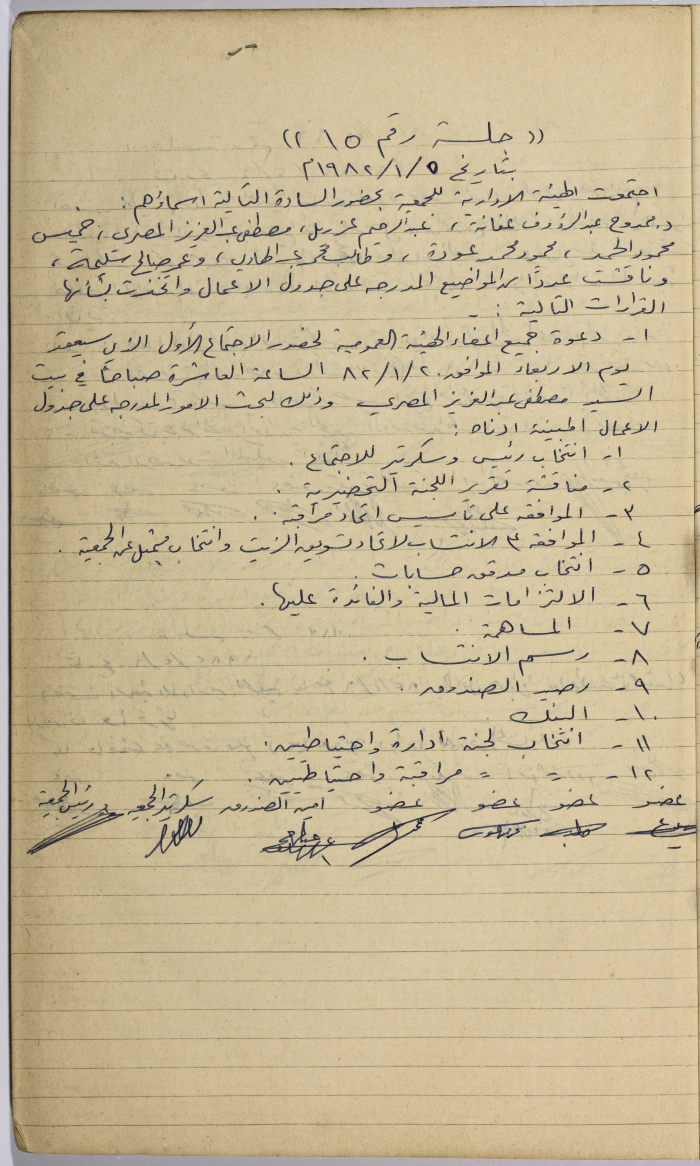 (( جلسة رقم ١٥ ))
بتاريخ ١٩٨٢/١/٥م
اجتمعت الهيئة الادارية للجمعية بحضور السادة التالية اسماؤهم :
د. ممدوح عبد الرؤوف عفانة ، عبد الرحيم غزيل ، مصطفى عبد العزيز المصري ، خميس
محمود الحمد ، محمود محمد عودة ، وطالب محمد عبد الهادي ، وعمر صالح سليمة ،
وناقشت عدداً من المواضيع المدرجه على جدول الاعمال واتخذت بشأنها
القرارات التالية : -
١- دعوة جميع اعضاء الهيئة العمومية لحضور الاجتماع الأول الذي سيعقد
يوم الاربعاء الموافق ٨٢/١/٢٠ الساعة العاشرة صباحاً في بيت
السيد مصطفى عبد العزيز المصري وذلك لبحث الامور المدرجه على جدول
الاعمال المبينة ادناه :
١- انتخاب رئيس وسكرتير للاجتماع .
٢- مناقشة تقرير اللجنة التحضيرية .
٣- الموافقه على تأسيس اتحاد مراقبة .
٤- الموافقه على الانتساب لاتحاد تسويق الزيت وانتخاب ممثل عن الجمعية .
٥- انتخاب مدقق حسابات .
٦- الالتزامات المالية والفائدة عليها .
٧- المساهمة .
٨- رسم الانتساب .
٩- رصيد الصندوق .
١٠- البنك
١١- انتخاب لجنة ادارة واحتياطيين .
١٢- = = مراقبة واحتياطيين .
عضو عضو عضو عضو امين الصندوق سكرتير الجمعية رئيس الجمعية